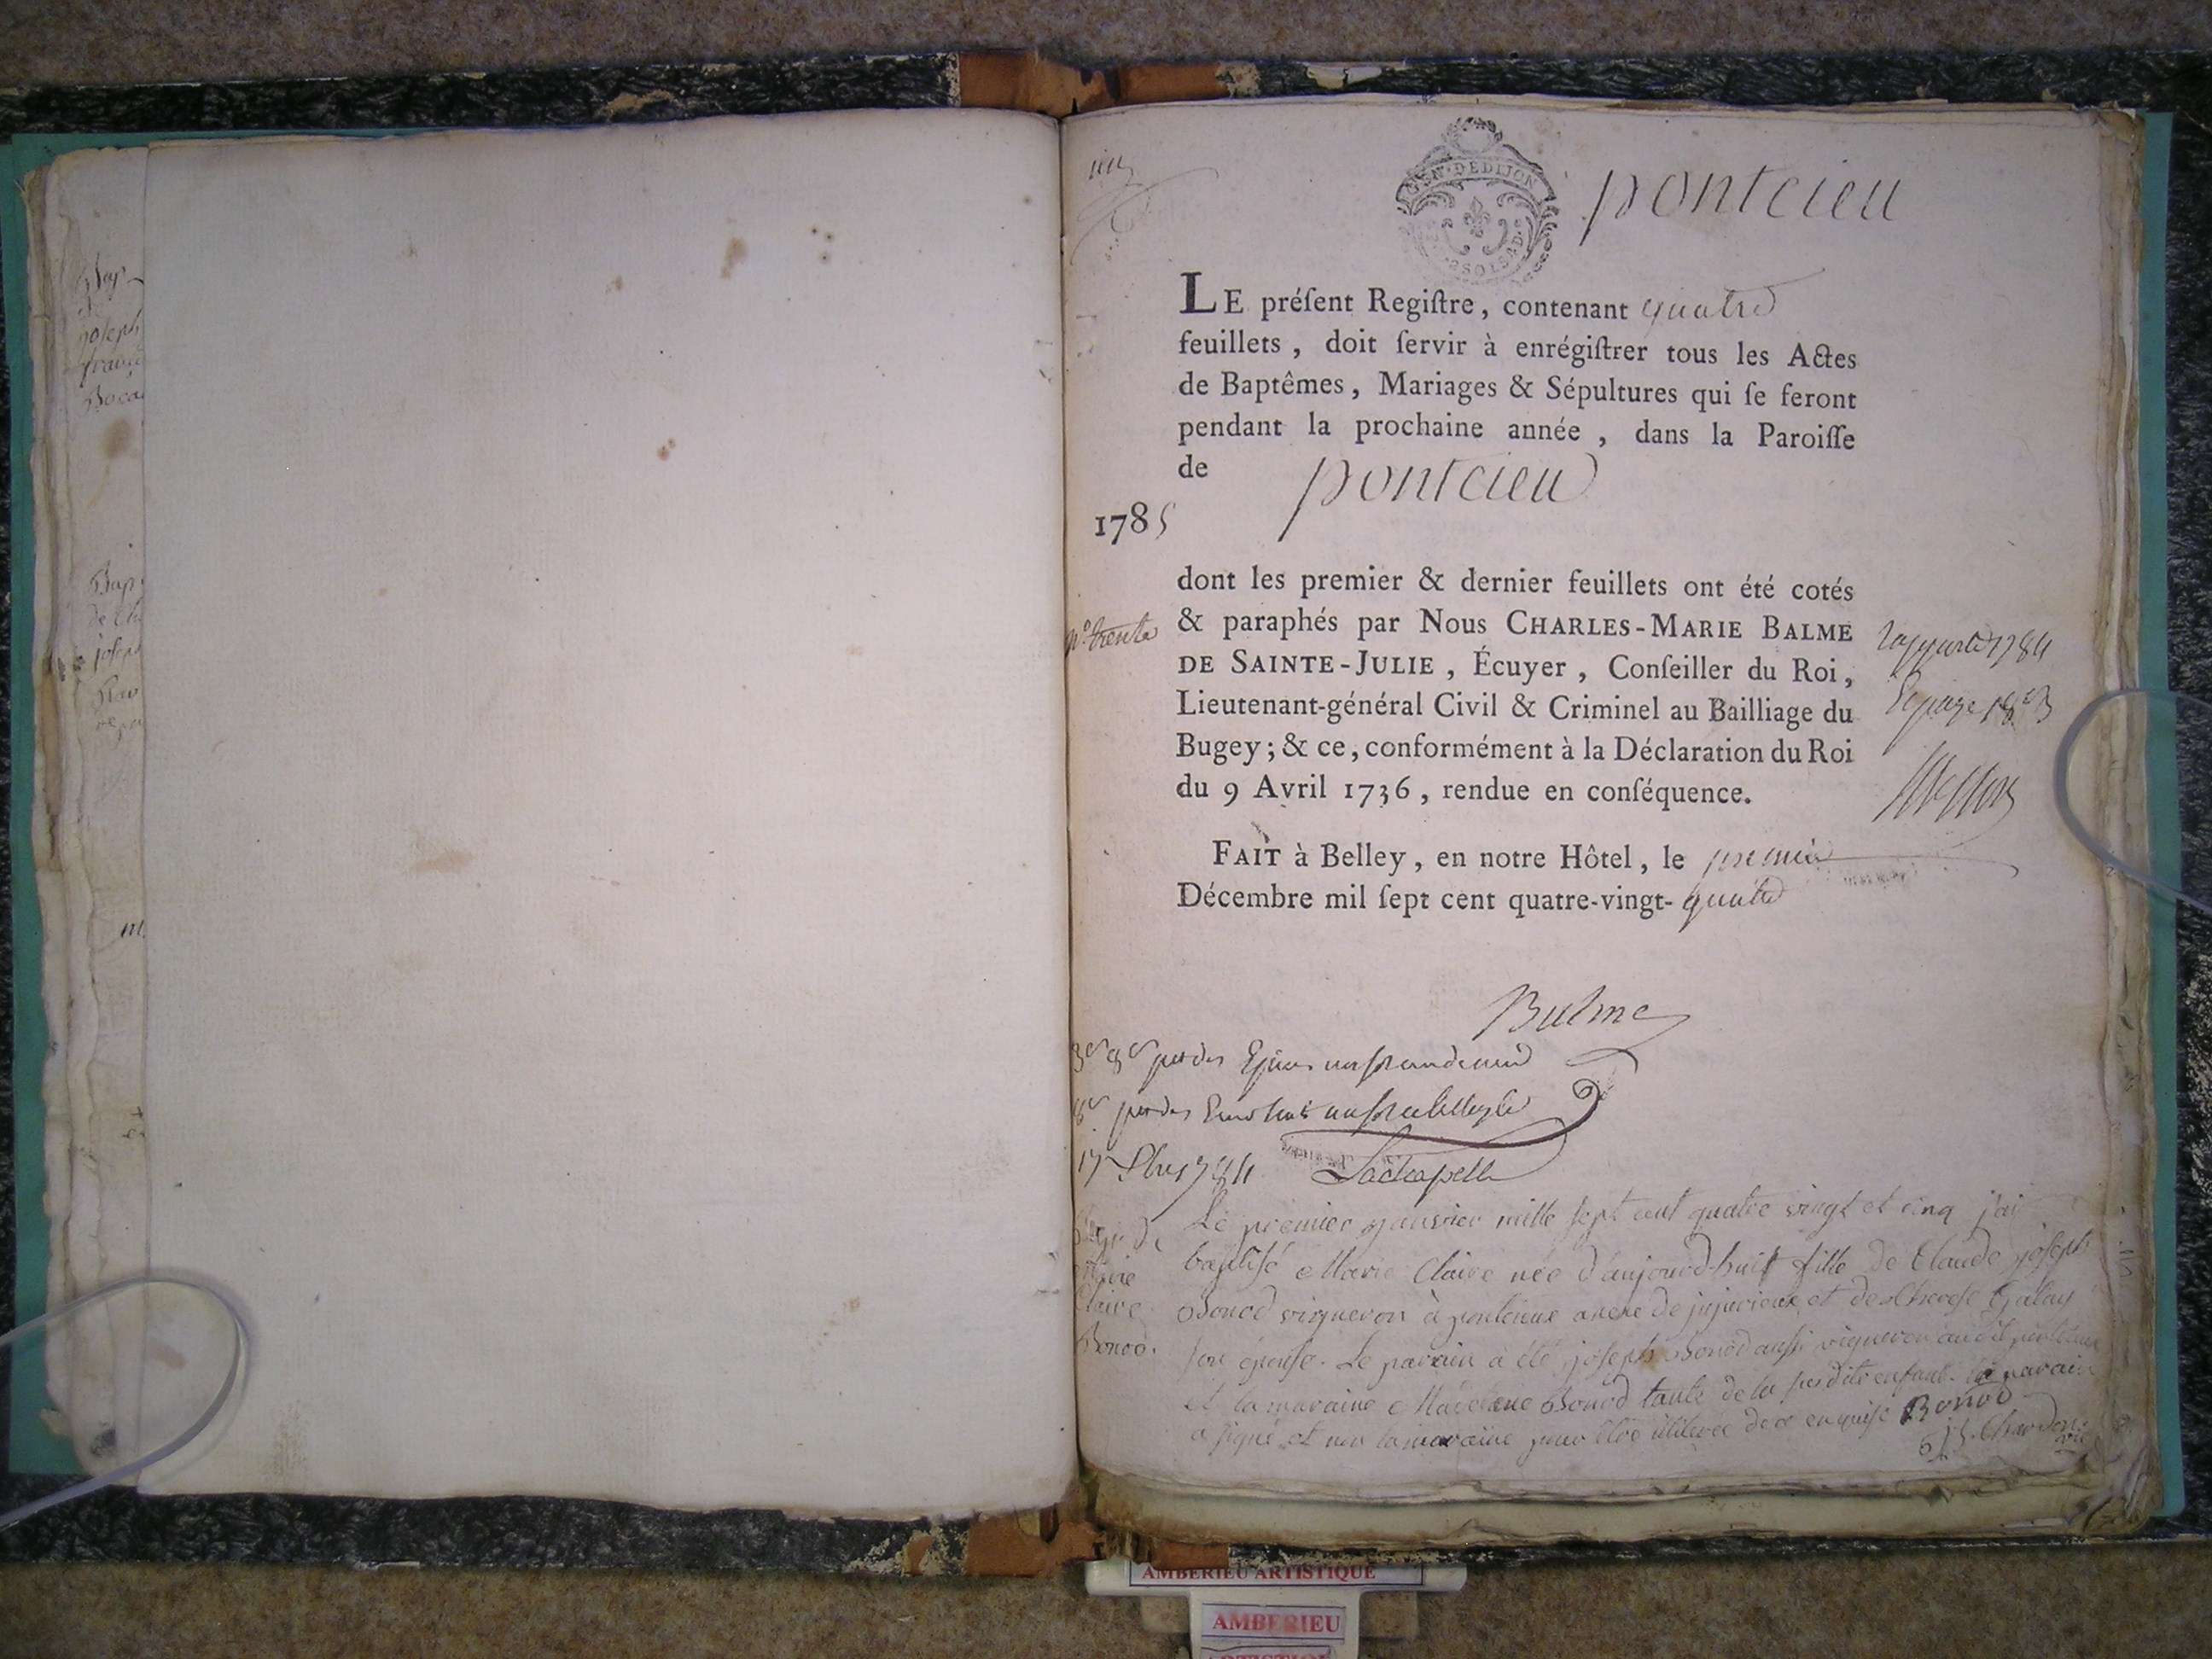 Bap
joseph
Bap
joseph
GEN·DEDIJON
2SOLSAD
pontcieu
LE préſent Regiſtre, contenant quatre
feuillets, doit ſervir à enrégiſtrer tous les Actes
de Baptêmes, Mariages & Sépultures qui ſe feront
pendant la prochaine année, dans la Paroiſſe
de pontcieu
1785
dont les premier & dernier feuillets ont été cotés
n.o trente
& paraphés par Nous CHARLES-MARIE BALME
DE SAINTE-JULIE, Écuyer, Conſeiller du Roi,
Lieutenant-général Civil & Criminel au Bailliage du
Bugey; & ce, conformément à la Déclaration du Roi
du 9 Avril 1736, rendue en conſéquence.
1784
FAIT à Belley, en notre Hôtel, le premier
Décembre mil ſept cent quatre-vingt-quatre
Balme
1784 Lachapelle
Marie
Claire
Bonod.
Le premier janvier mille sept cent quatre vingt et cinq j'ai
baptisé Marie Claire née d'aujourd-huit fille de Claude joseph
Bonod vigneron à pontcieux anexe de jujurieux et de Therese Galay
son épouse. Le parrain à été joseph Bonod aussi vigneron audit pontcieux
et la maraine Madelaine Bonod tante de la susdite enfant. le parain
a signé et non la maraine pour être illiteree de ce enquise Bonod
AMBERIEU ARTISTIQUE
AMBERIEU
ARTISTIQUE